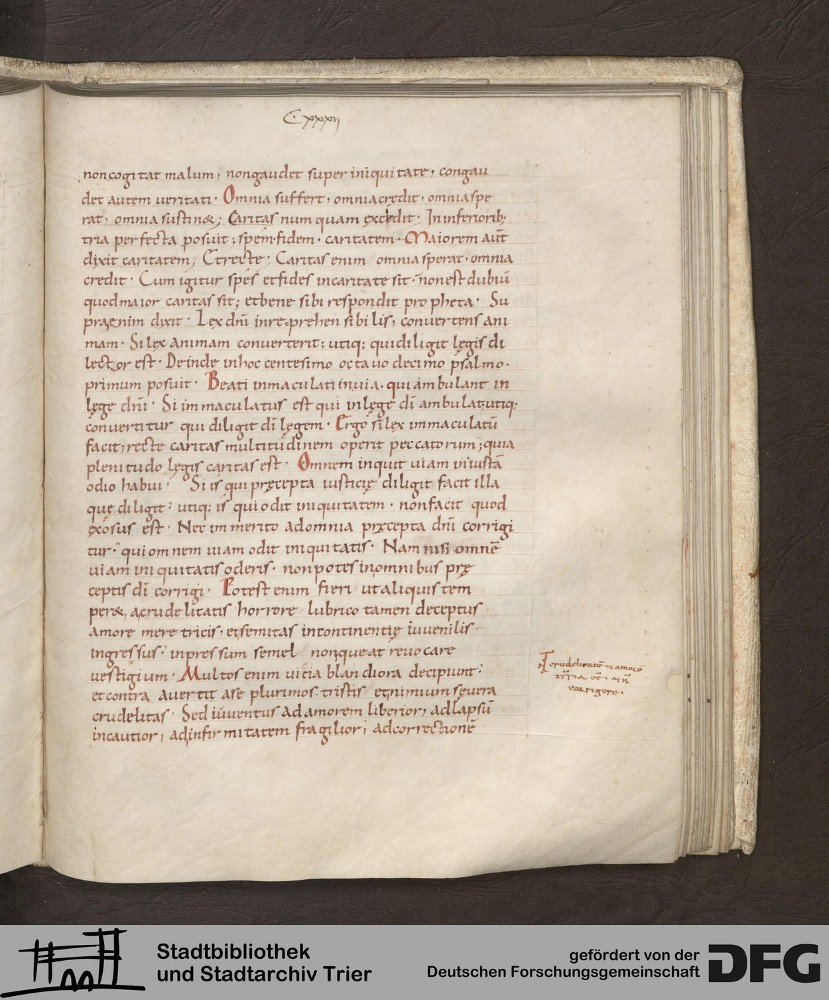 Cxxxii
non cogitat malum; non gaudet super iniquitate, congau
det autem ueritati. Omnia suffert, omnia credit, omnia spe
rat, omnia sustin&; Caritas numquam excedit. In inferiorib;
tria perfecta posuit; spem. fidem. caritatem. Maiorem aūt
dixit caritatem; Et recte; Caritas enim omnia sperat. omnia
credit. Cum igitur spes et fides in caritate sit. non est dubiū
quod maior caritas sit; et bene sibi respondit propheta. Su
pra enim dixit. Lex dn̄i inreprehensibilis, conuertens ani
mam. Si lex animam conuerterit; utiq; qui diligit legis di
lector est. Deinde in hoc centesimo octauo decimo psalmo.
primum posuit. Beati inmaculati in uia. qui ambulant in
lęge dn̄i. Si immaculatus est qui in lęge dī ambulat; utiq;
conuertitur qui diligit dī legem. Ergo si lex immaculatū
facit; recte caritas multitudinem operit peccatorum; quia
plenitudo lęgis caritas est. Omnem inquit uiam iniustā
odio habui. Si is qui pręcepta iusticię diligit facit illa
quę diligit; utiq; is qui odit iniquitatem. non facit quod
exosus est. Nec immerito ad omnia pręcepta dn̄i corrigi
tur. qui omnem uiam odit iniquitatis. Nam nisi omnē
uiam iniquitatis oderis. non potes in omnibus prę
ceptis dī corrigi. Potest enim fieri ut aliquis tem
per&, a crudelitatis horrore lubrico tamen deceptus
amore meretricis. et semitas incontinentię iuuenilis
ingressus. inpressum semel non queat reuocare
uestigium. Multos enim uicia blandiora decipiunt.
et contra auertit a se plurimos tristis et nimium seuera
crudelitas. Sed iuuentus ad amorem liberior; ad lapsū
incautior; ad infirmitatem fragilior; ad correctionē
Stadtbibliothek
und Stadtarchiv Trier
gefördert von der
Deutschen Forschungsgemeinschaft
DFG